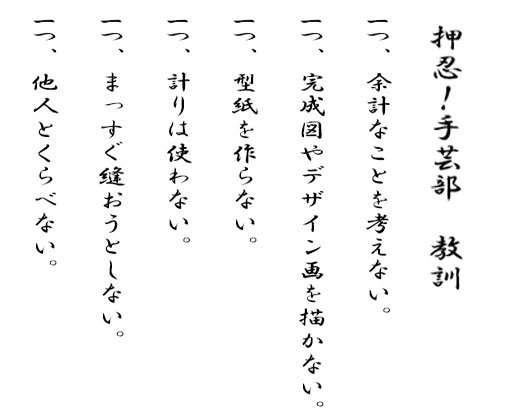 押忍！手芸部　教訓
一つ、余計なことを考えない。
一つ、完成図やデザイン画を描かない。
一つ、型紙を作らない。
一つ、計りは使わない。
一つ、まっすぐ縫おうとしない。
一つ、他人とくらべない。